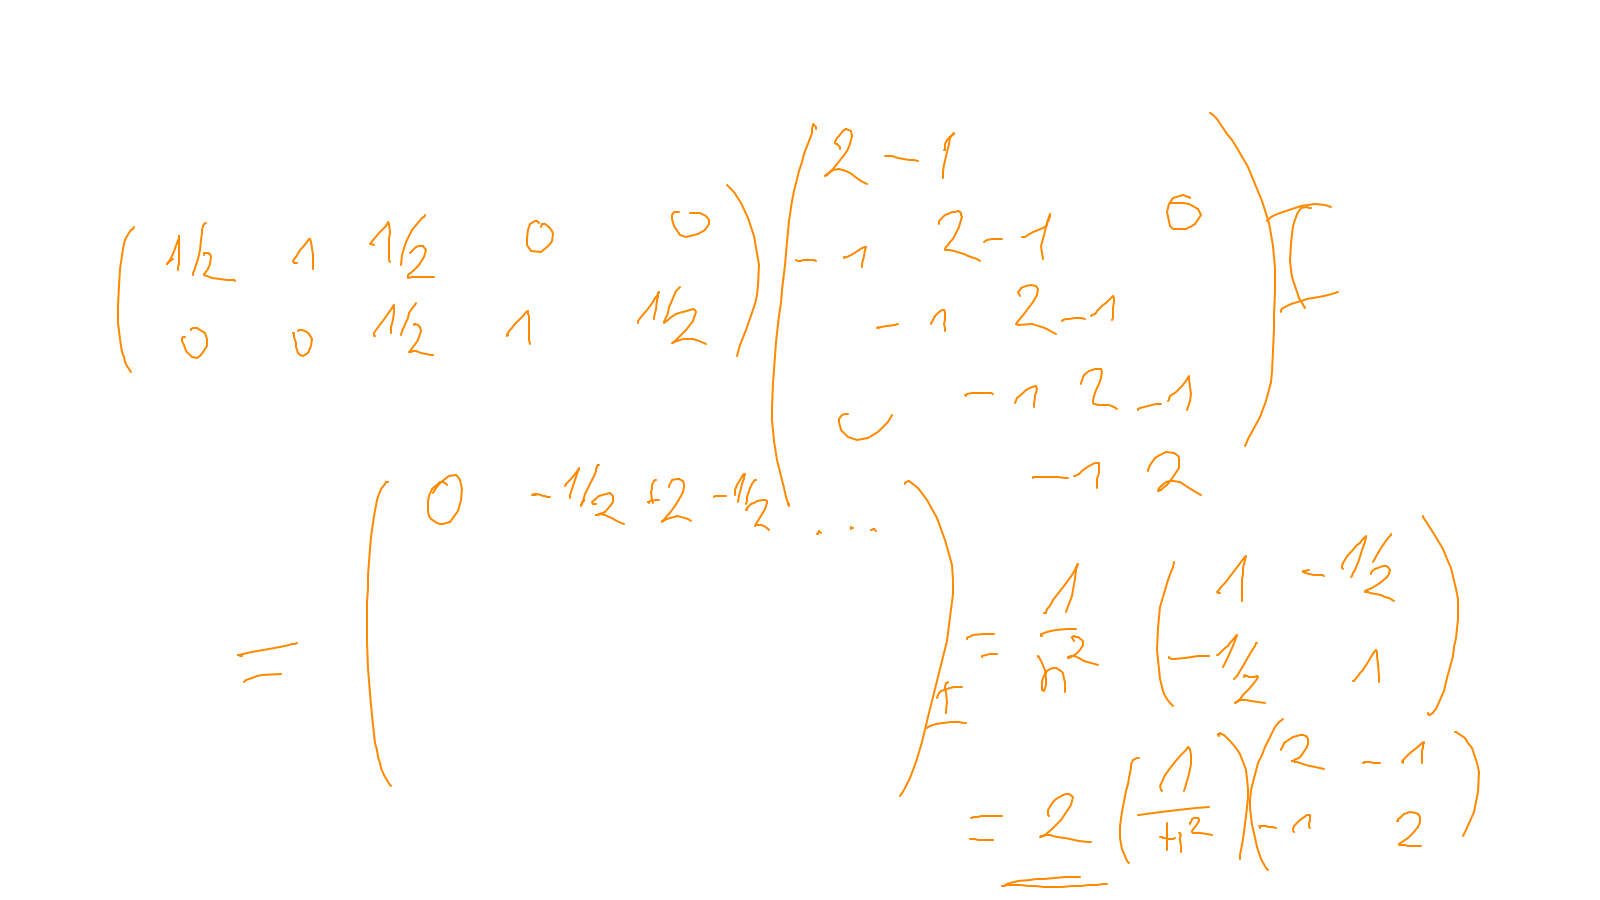 ( 1/2 1 1/2 0 0 ) ( 2 -1
0 0 1/2 1 1/2 -1 2 -1 0 ) I
-1 2 -1
0 -1 2 -1
-1 2
= ( 0 -1/2 +2 -1/2 ... ) I = 1/h² ( 1 -1/2
-1/2 1 )
= 2 ( 1/H² ) ( 2 -1
-1 2 )